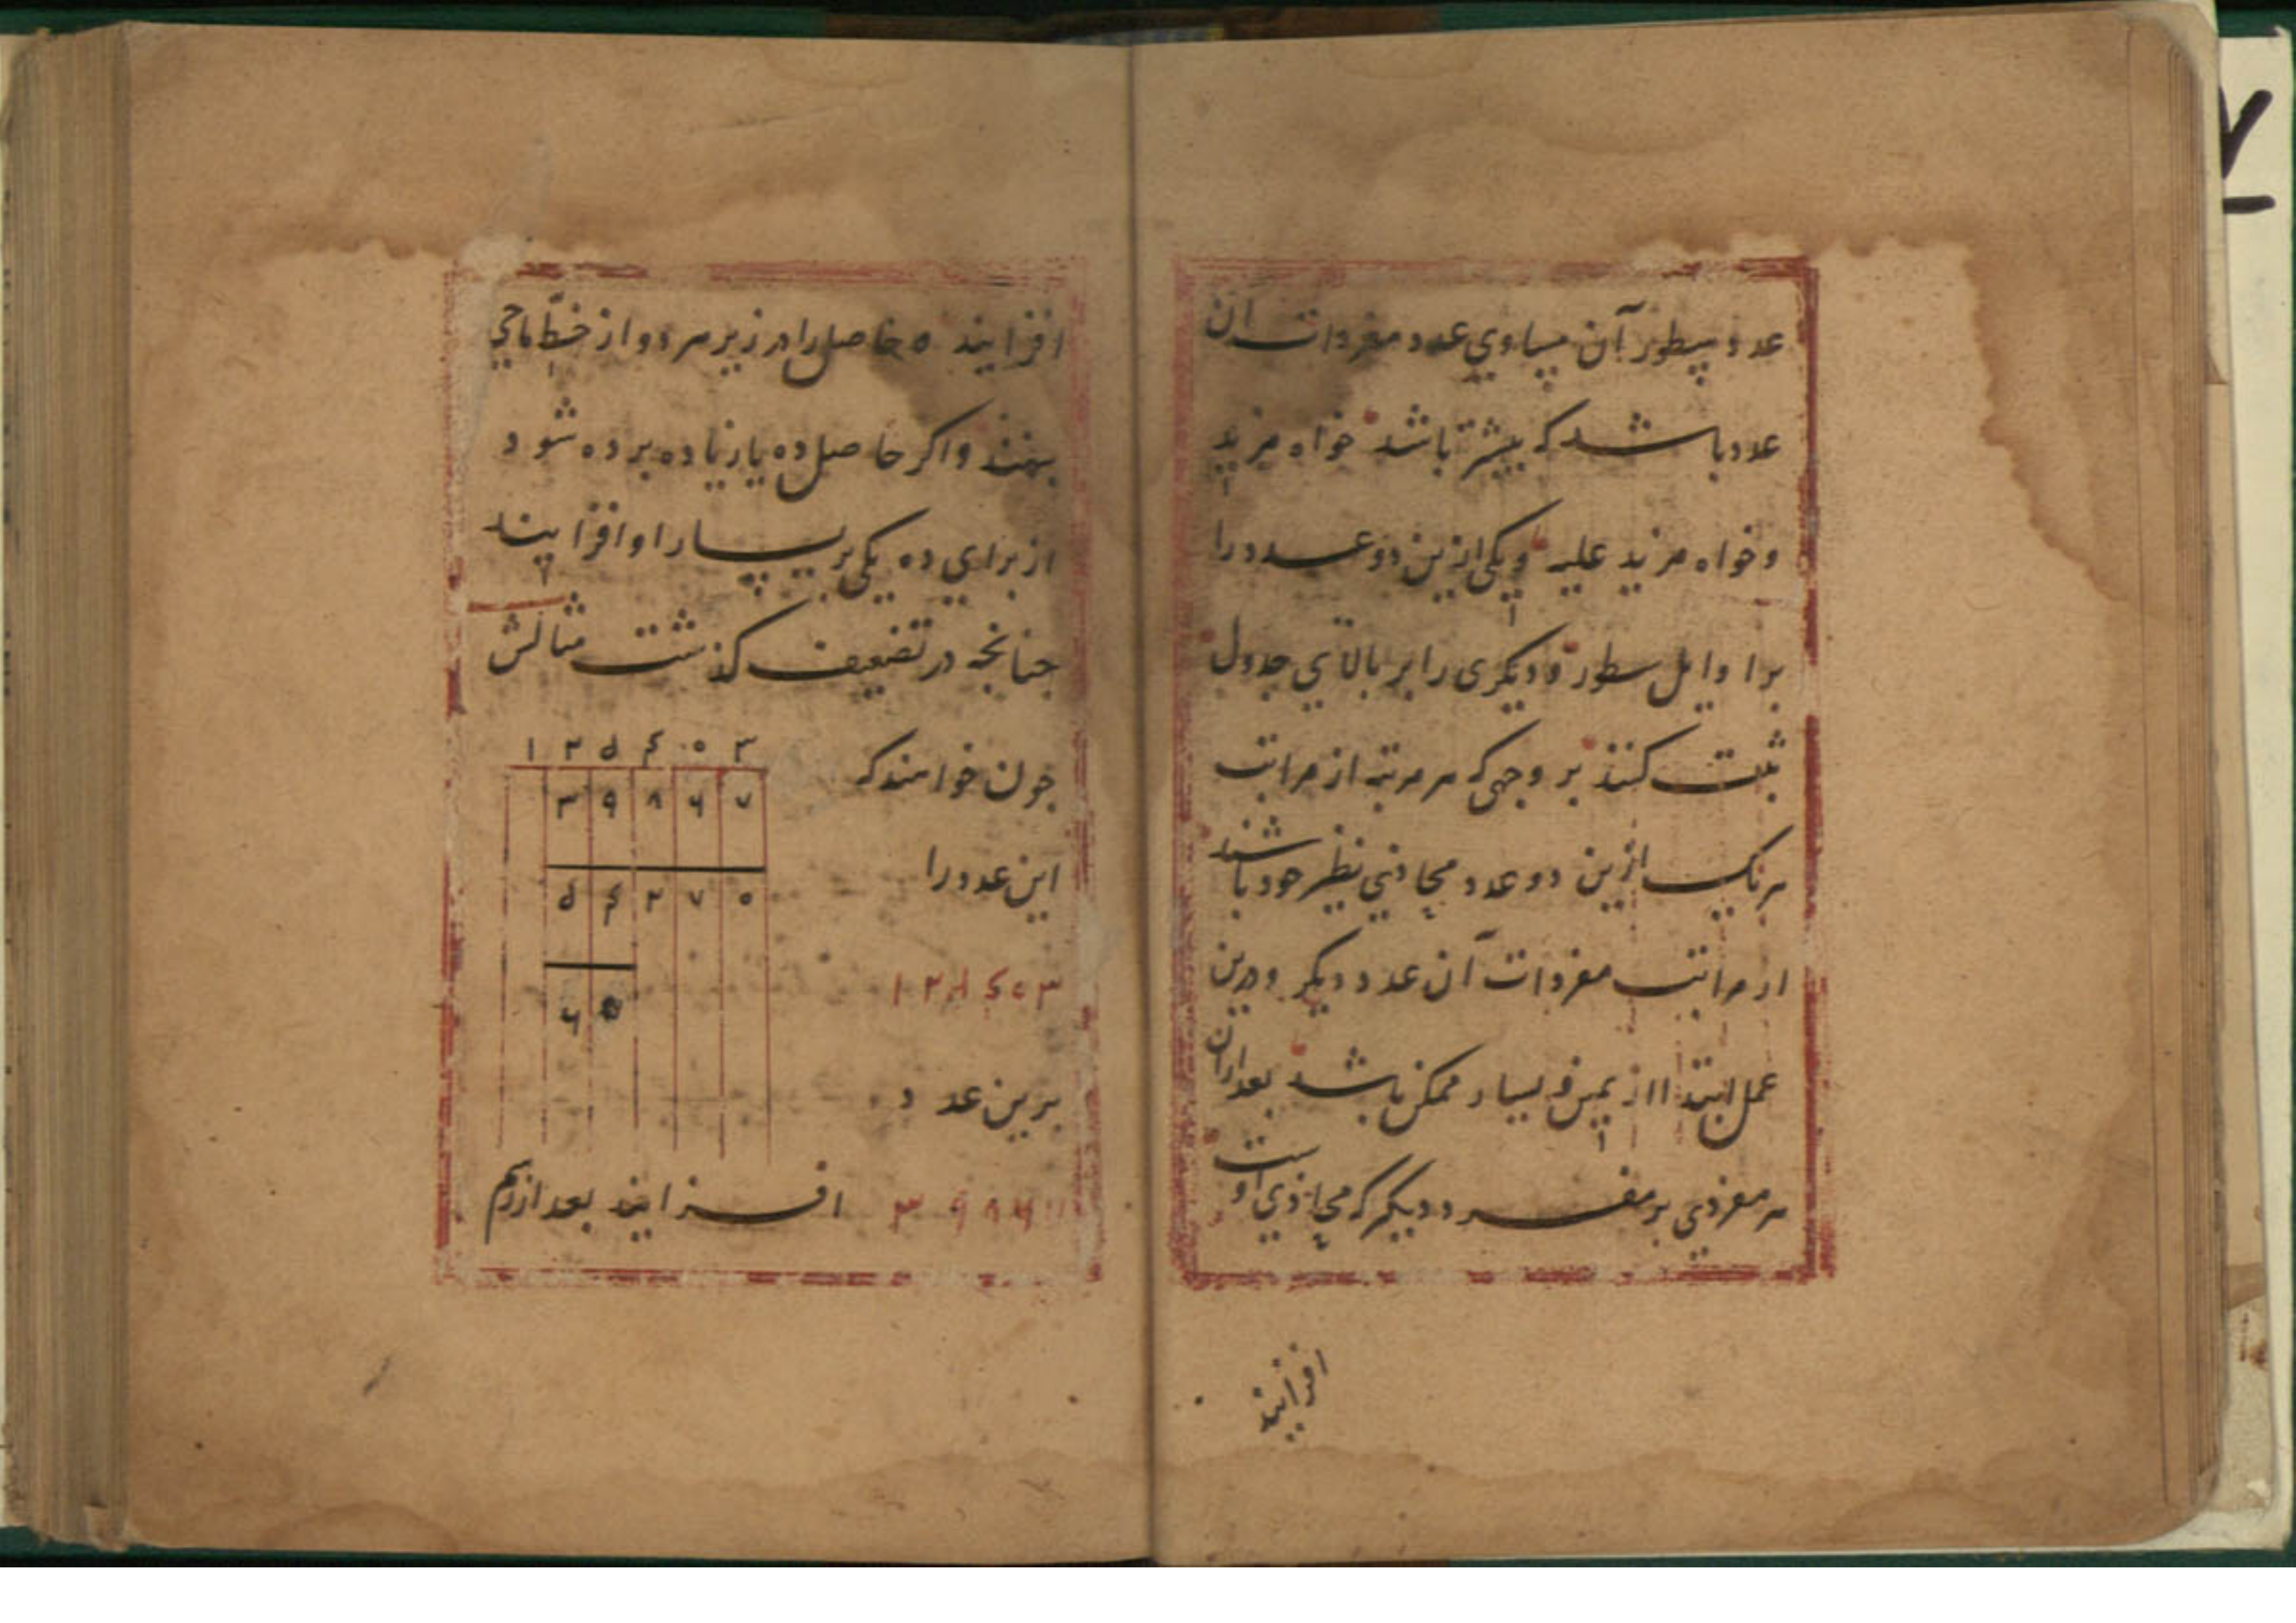 عدد سطور آن مساوی عدد مفردات ان
عدد باشد که بیشتر باشد خواه مزید
و خواه مزید علیه و یکی ازین دو عدد را
بر اوایل سطور و دیکری را بر بالای جدول
ثبت کنند بر وجهی که هر مرتبه از مراتب
هر یک ازین دو عدد محاذی نظیر خود باشند
از مراتب مفردات آن عدد دیکر و درین
عمل ابتدا از یمین و یسار ممکن باشد بعد ازان
هر مفردی بر مفرد دیکر که محاذی اوست
افزایند
افزایند و حاصل را در زیر هر دو از خط ماحی
بنهند و اکر حاصل ده یا زیاده بر ده شود
از برای ده یکی بر یسار او افزایند
جنانجه در تضعیف کذشت مثالش
جون خواهند که
۱ ۲ ۵ ۴ ۰ ۳
۳ ۹ ۸ ۶ ۷
این عدد را
۵ ۴ ۲ ۷ ۰
۱ ۲ ۵ ۴ ۰ ۳
۶
برین عدد
۳ ۹ ۸ ۶
افزایند بعد از رسم